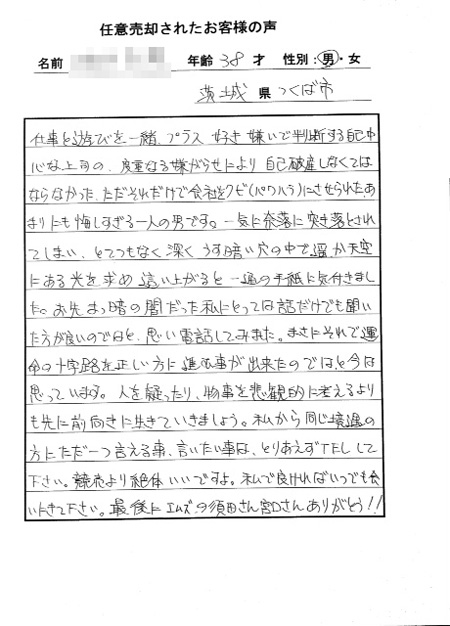 任意売却されたお客様の声
名前 年齢 38 才 性別:男・女
茨城 県 つくば市
仕事と遊びを一緒、プラス 好き嫌いで判断する自己中
心な上司の、度重なる嫌がらせにより 自己破産しなくては
ならなかった、ただそれだけで会社をクビ(パワハラ)にさせられた、あ
まりにも悔しすぎる一人の男です。一気に奈落に突き落とされ
てしまい、とてつもなく深く うす暗い穴の中で遥か天空
にある光を求め 這い上がると 一通の手紙に気付きまし
た。お先まっ暗の闇だった私にとっては話だけでも聞い
た方が良いのではと、思い電話してみました。まさにそれで運
命の十字路を正しい方に進む事が出来たのではと今は
思っています。人を疑ったり、物事を悲観的に考えるより
も先に前向きに生きていきましょう。私から同じ境遇の
方にただ一つ言える事、言いたい事は、とりあえずTELして
下さい。競売より絶体いいですよ。私で良ければいつでも会
いにきて下さい。最後に エムズの須田さん 宮口さん ありがとう!!